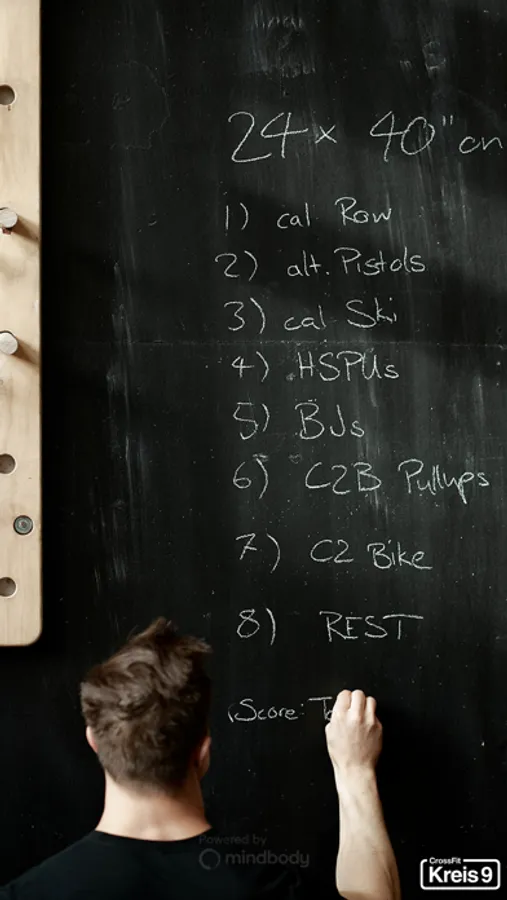 24 x 40" on
1) cal Row
2) alt. Pistols
3) cal Ski
4) HSPUs
5) BJs
6) C2B Pullups
7) C2 Bike
8) REST
Score: T
Powered by
mindbody
CrossFit
Kreis 9